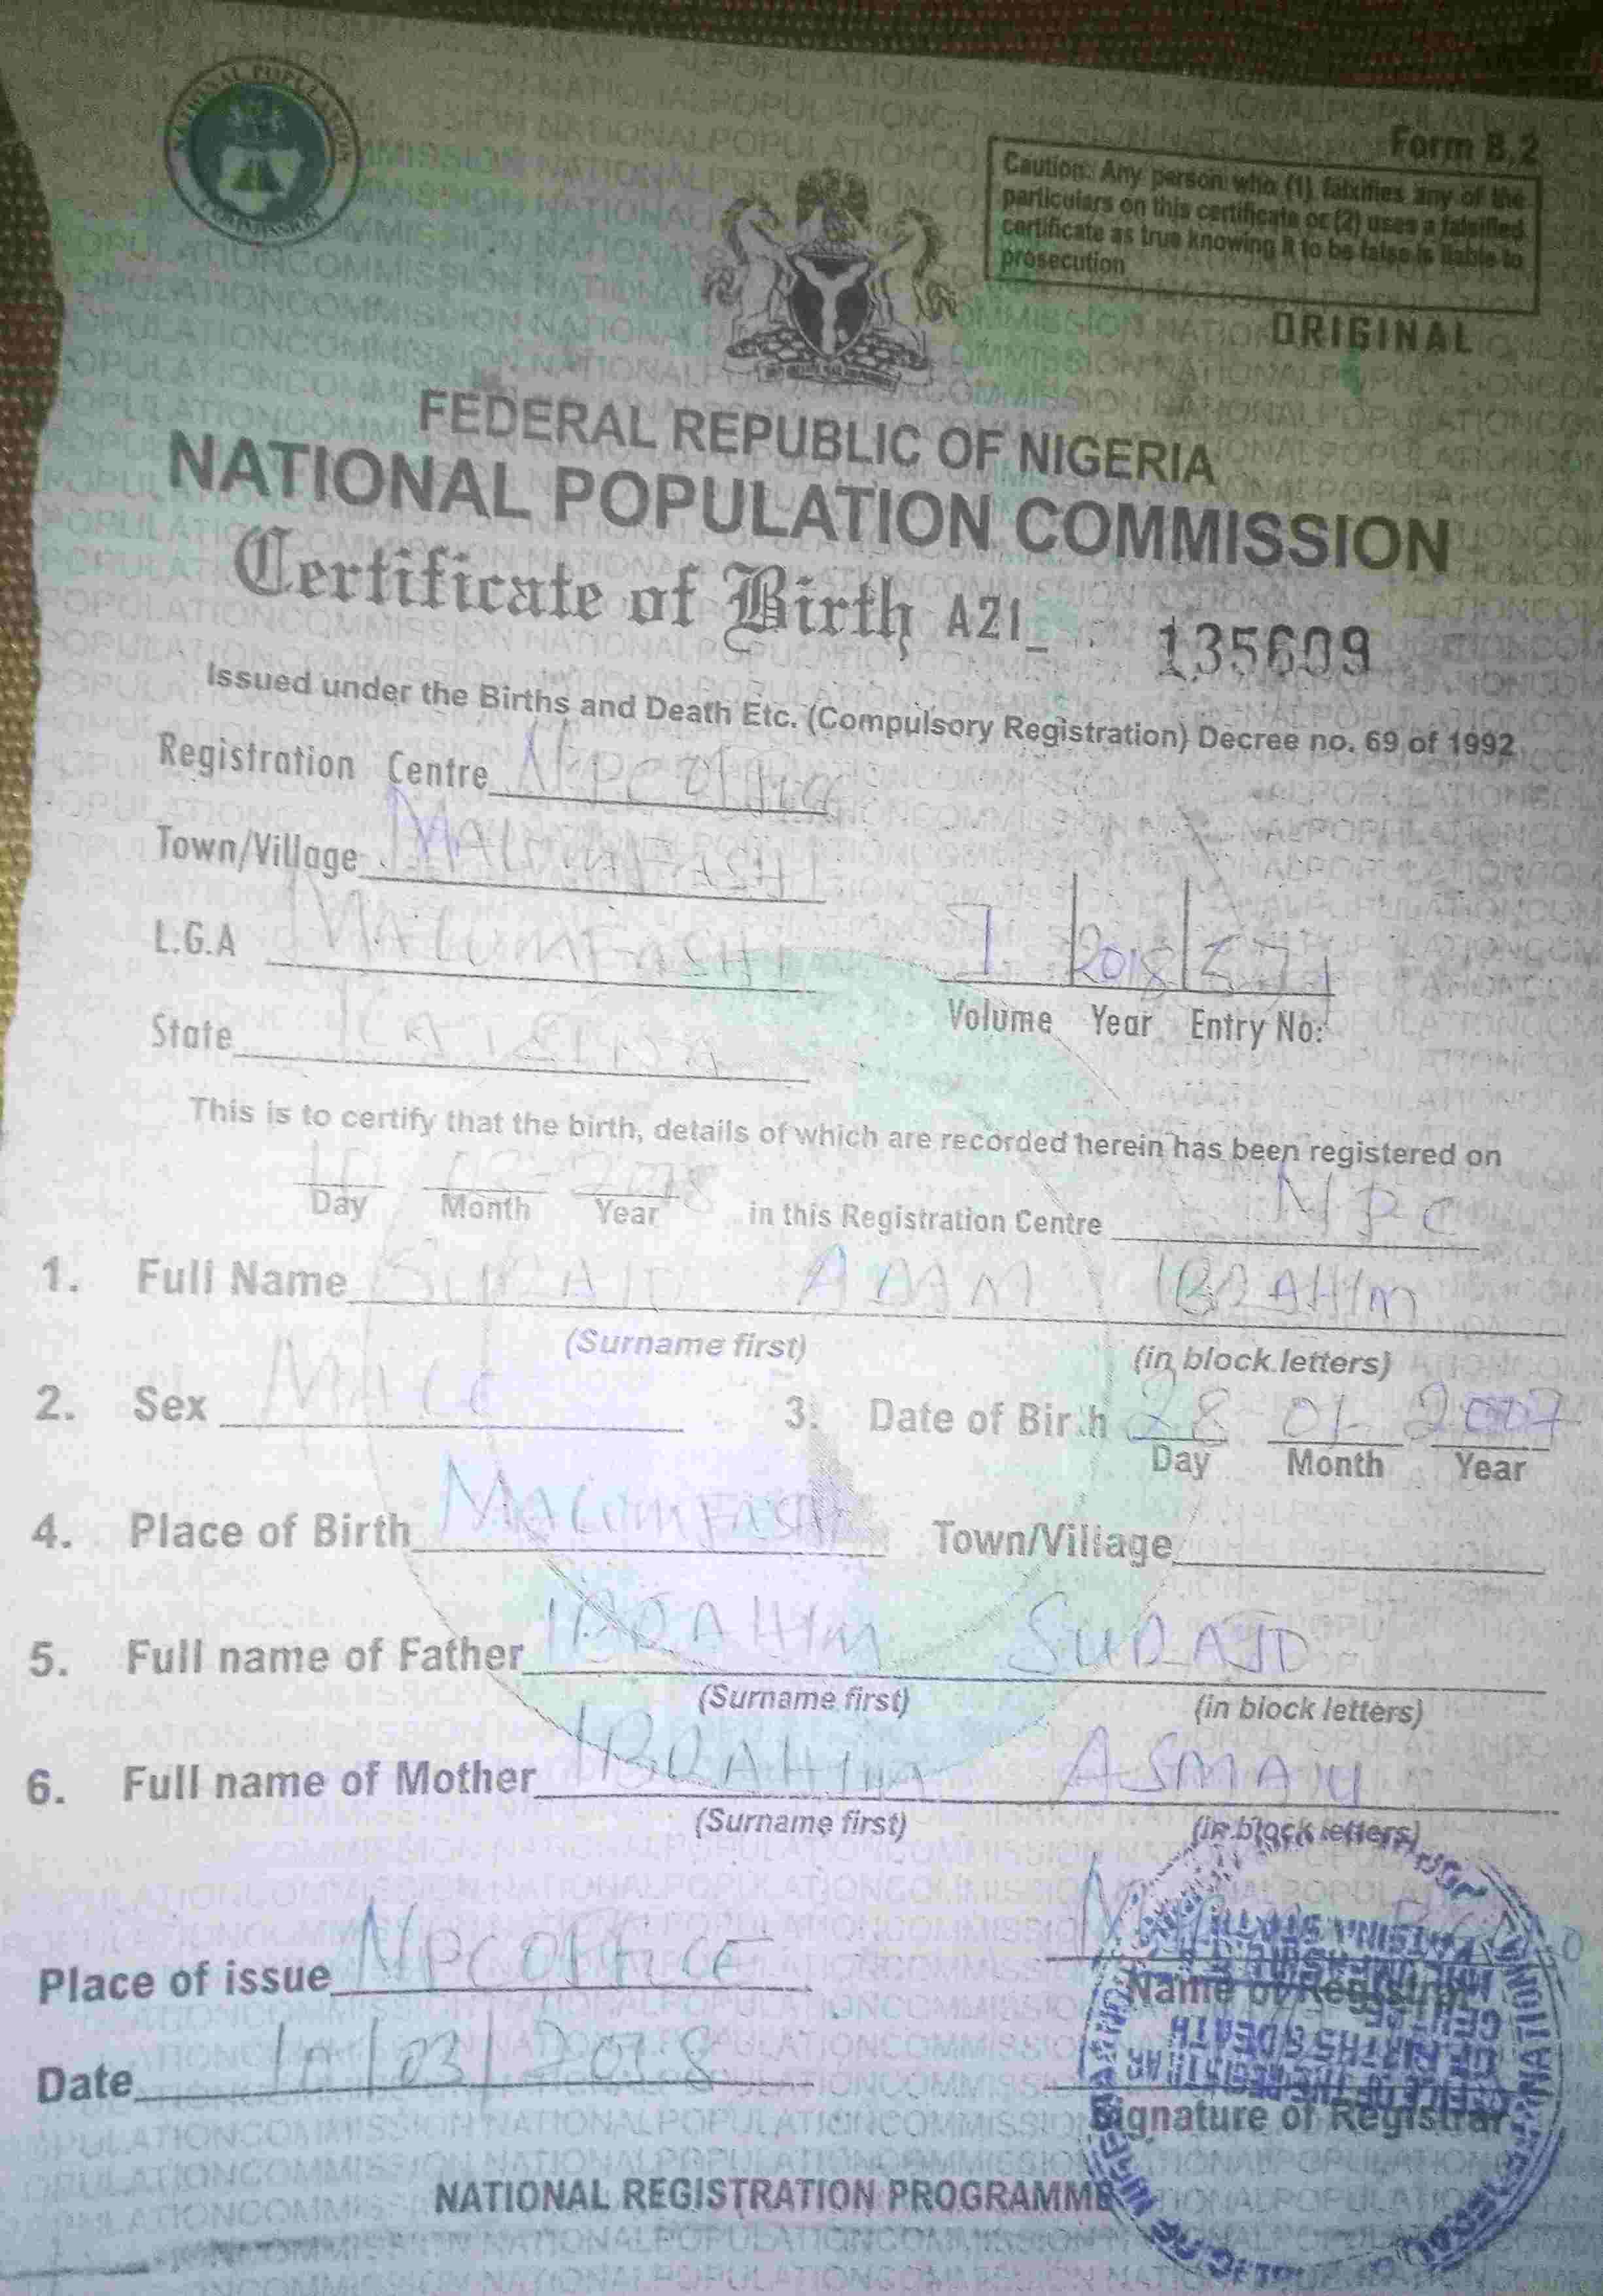 NATIONAL POPULATION COMMISSION
Form B.2
Caution: Any person who (1) falsifies any of the
particulars on this certificate or (2) uses a falsified
certificate as true knowing it to be false is liable to
prosecution
ORIGINAL
FEDERAL REPUBLIC OF NIGERIA
NATIONAL POPULATION COMMISSION
Certificate of Birth A21 135609
Issued under the Births and Death Etc. (Compulsory Registration) Decree no. 69 of 1992
Registration Centre
Town/Village MALUMFASHI
L.G.A MALUMFASHI 2018
Volume Year Entry No:
State KATSINA
This is to certify that the birth, details of which are recorded herein has been registered on
2018
Day Month Year in this Registration Centre NPC
1. Full Name SURAJO ADAM IBRAHIM
(Surname first) (in block letters)
2. Sex MALE 3. Date of Birth 28 01 2007
Day Month Year
4. Place of Birth MALUMFASHI Town/Village
5. Full name of Father IBRAHIM SURAJO
(Surname first) (in block letters)
6. Full name of Mother IBRAHIM ASMAU
(Surname first) (in block letters)
Place of issue NPC OFFICE
Name of Registrar
Date 10/03/2018
Signature of Registrar
NATIONAL REGISTRATION PROGRAMME